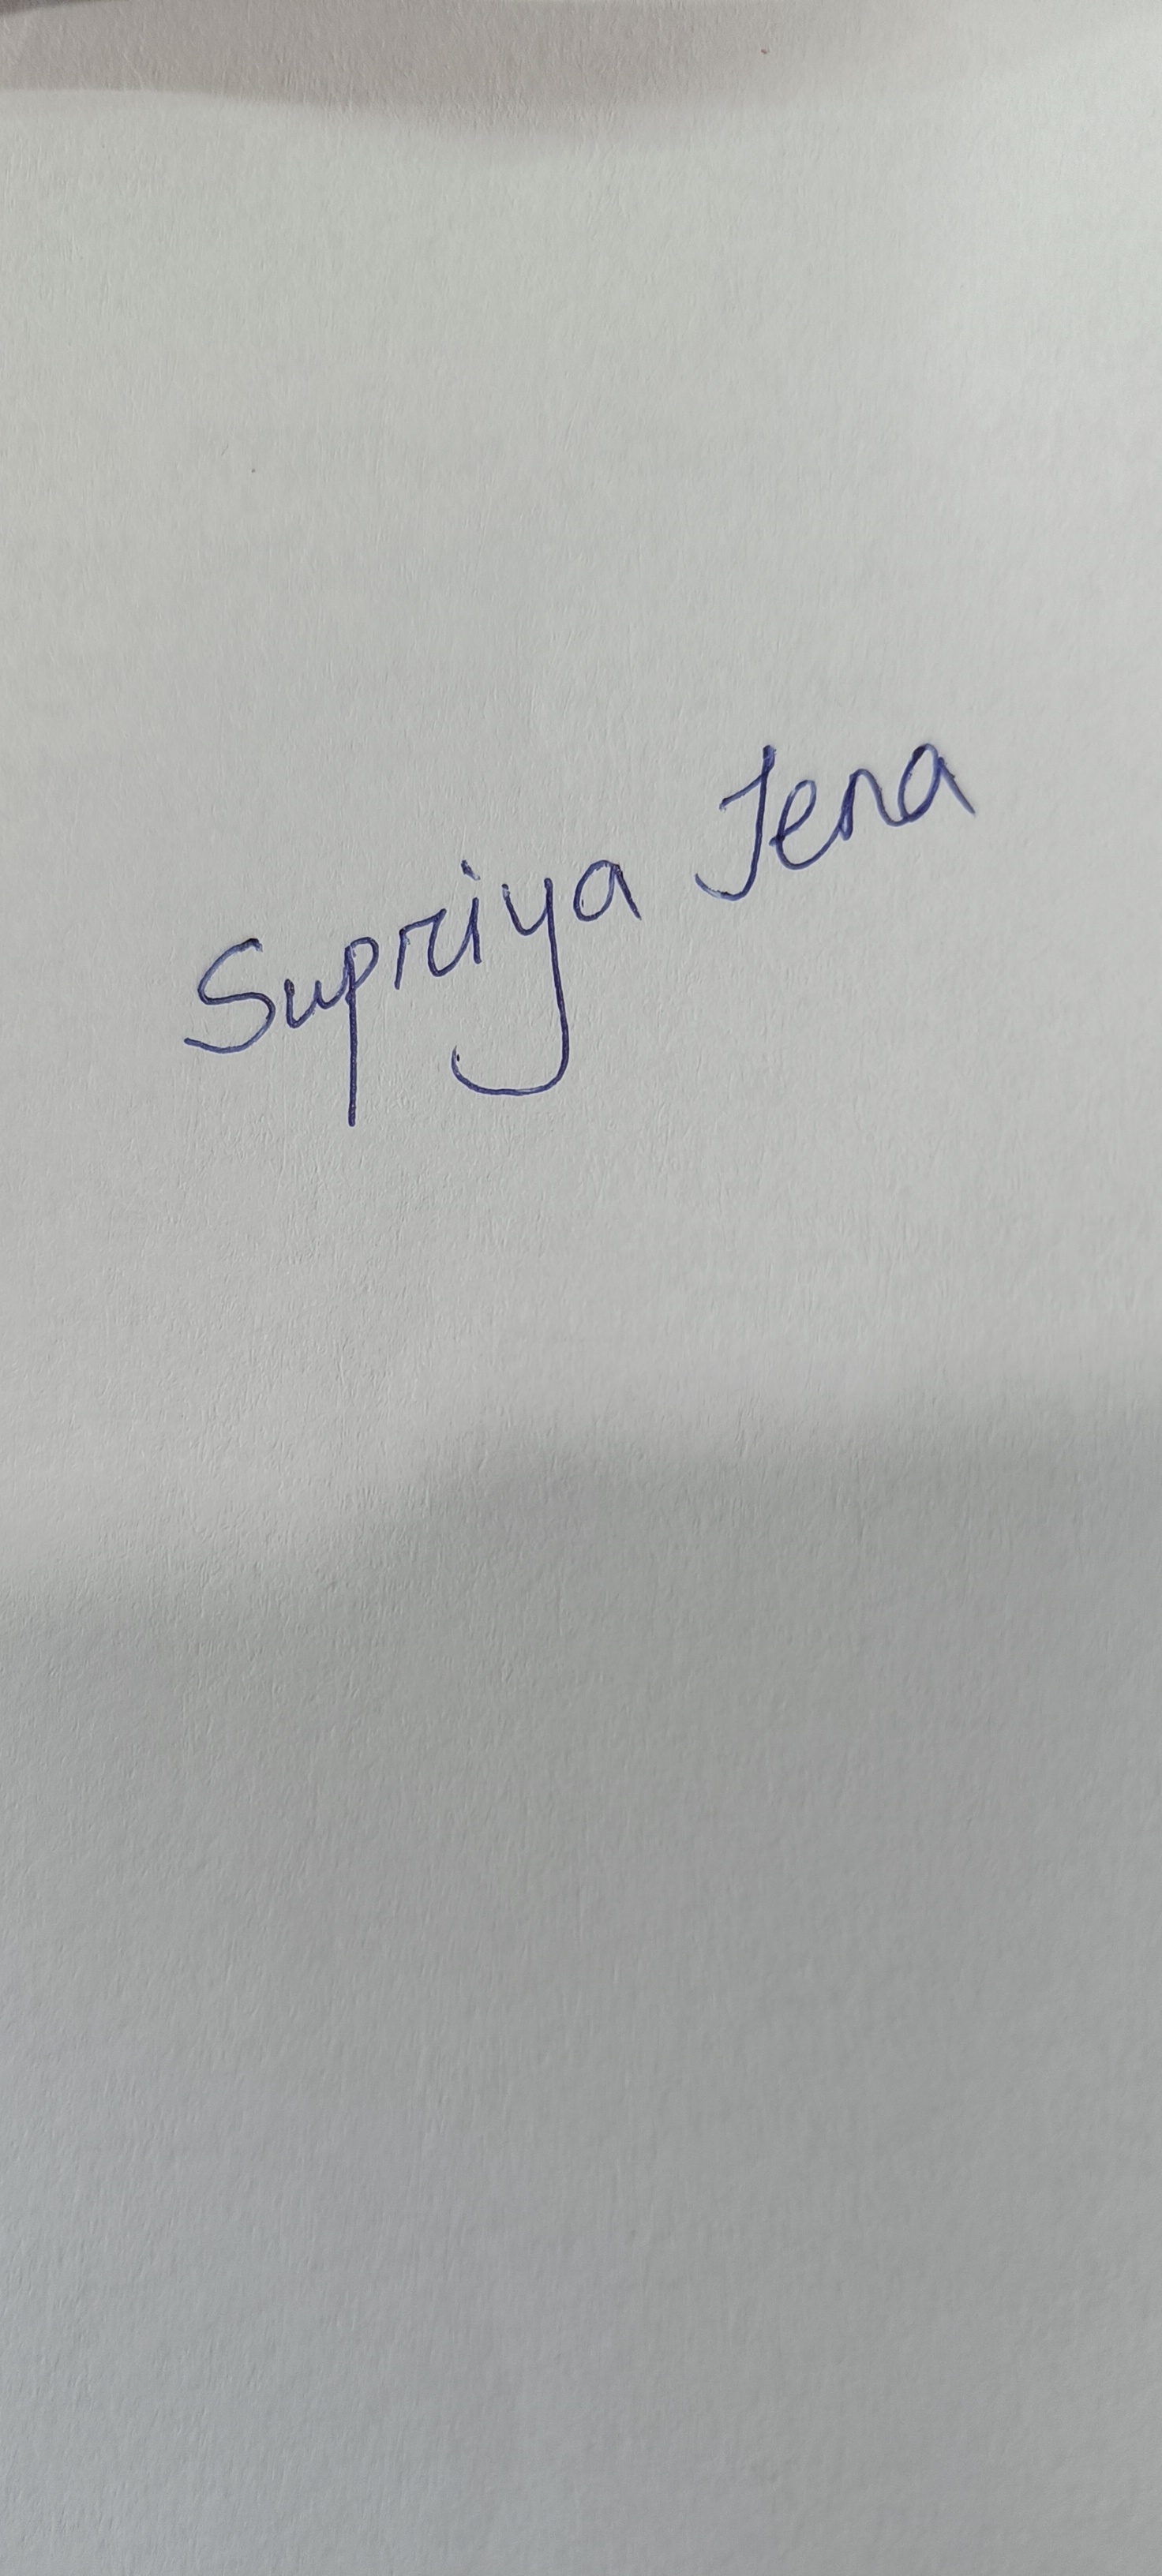 Supriya Jena